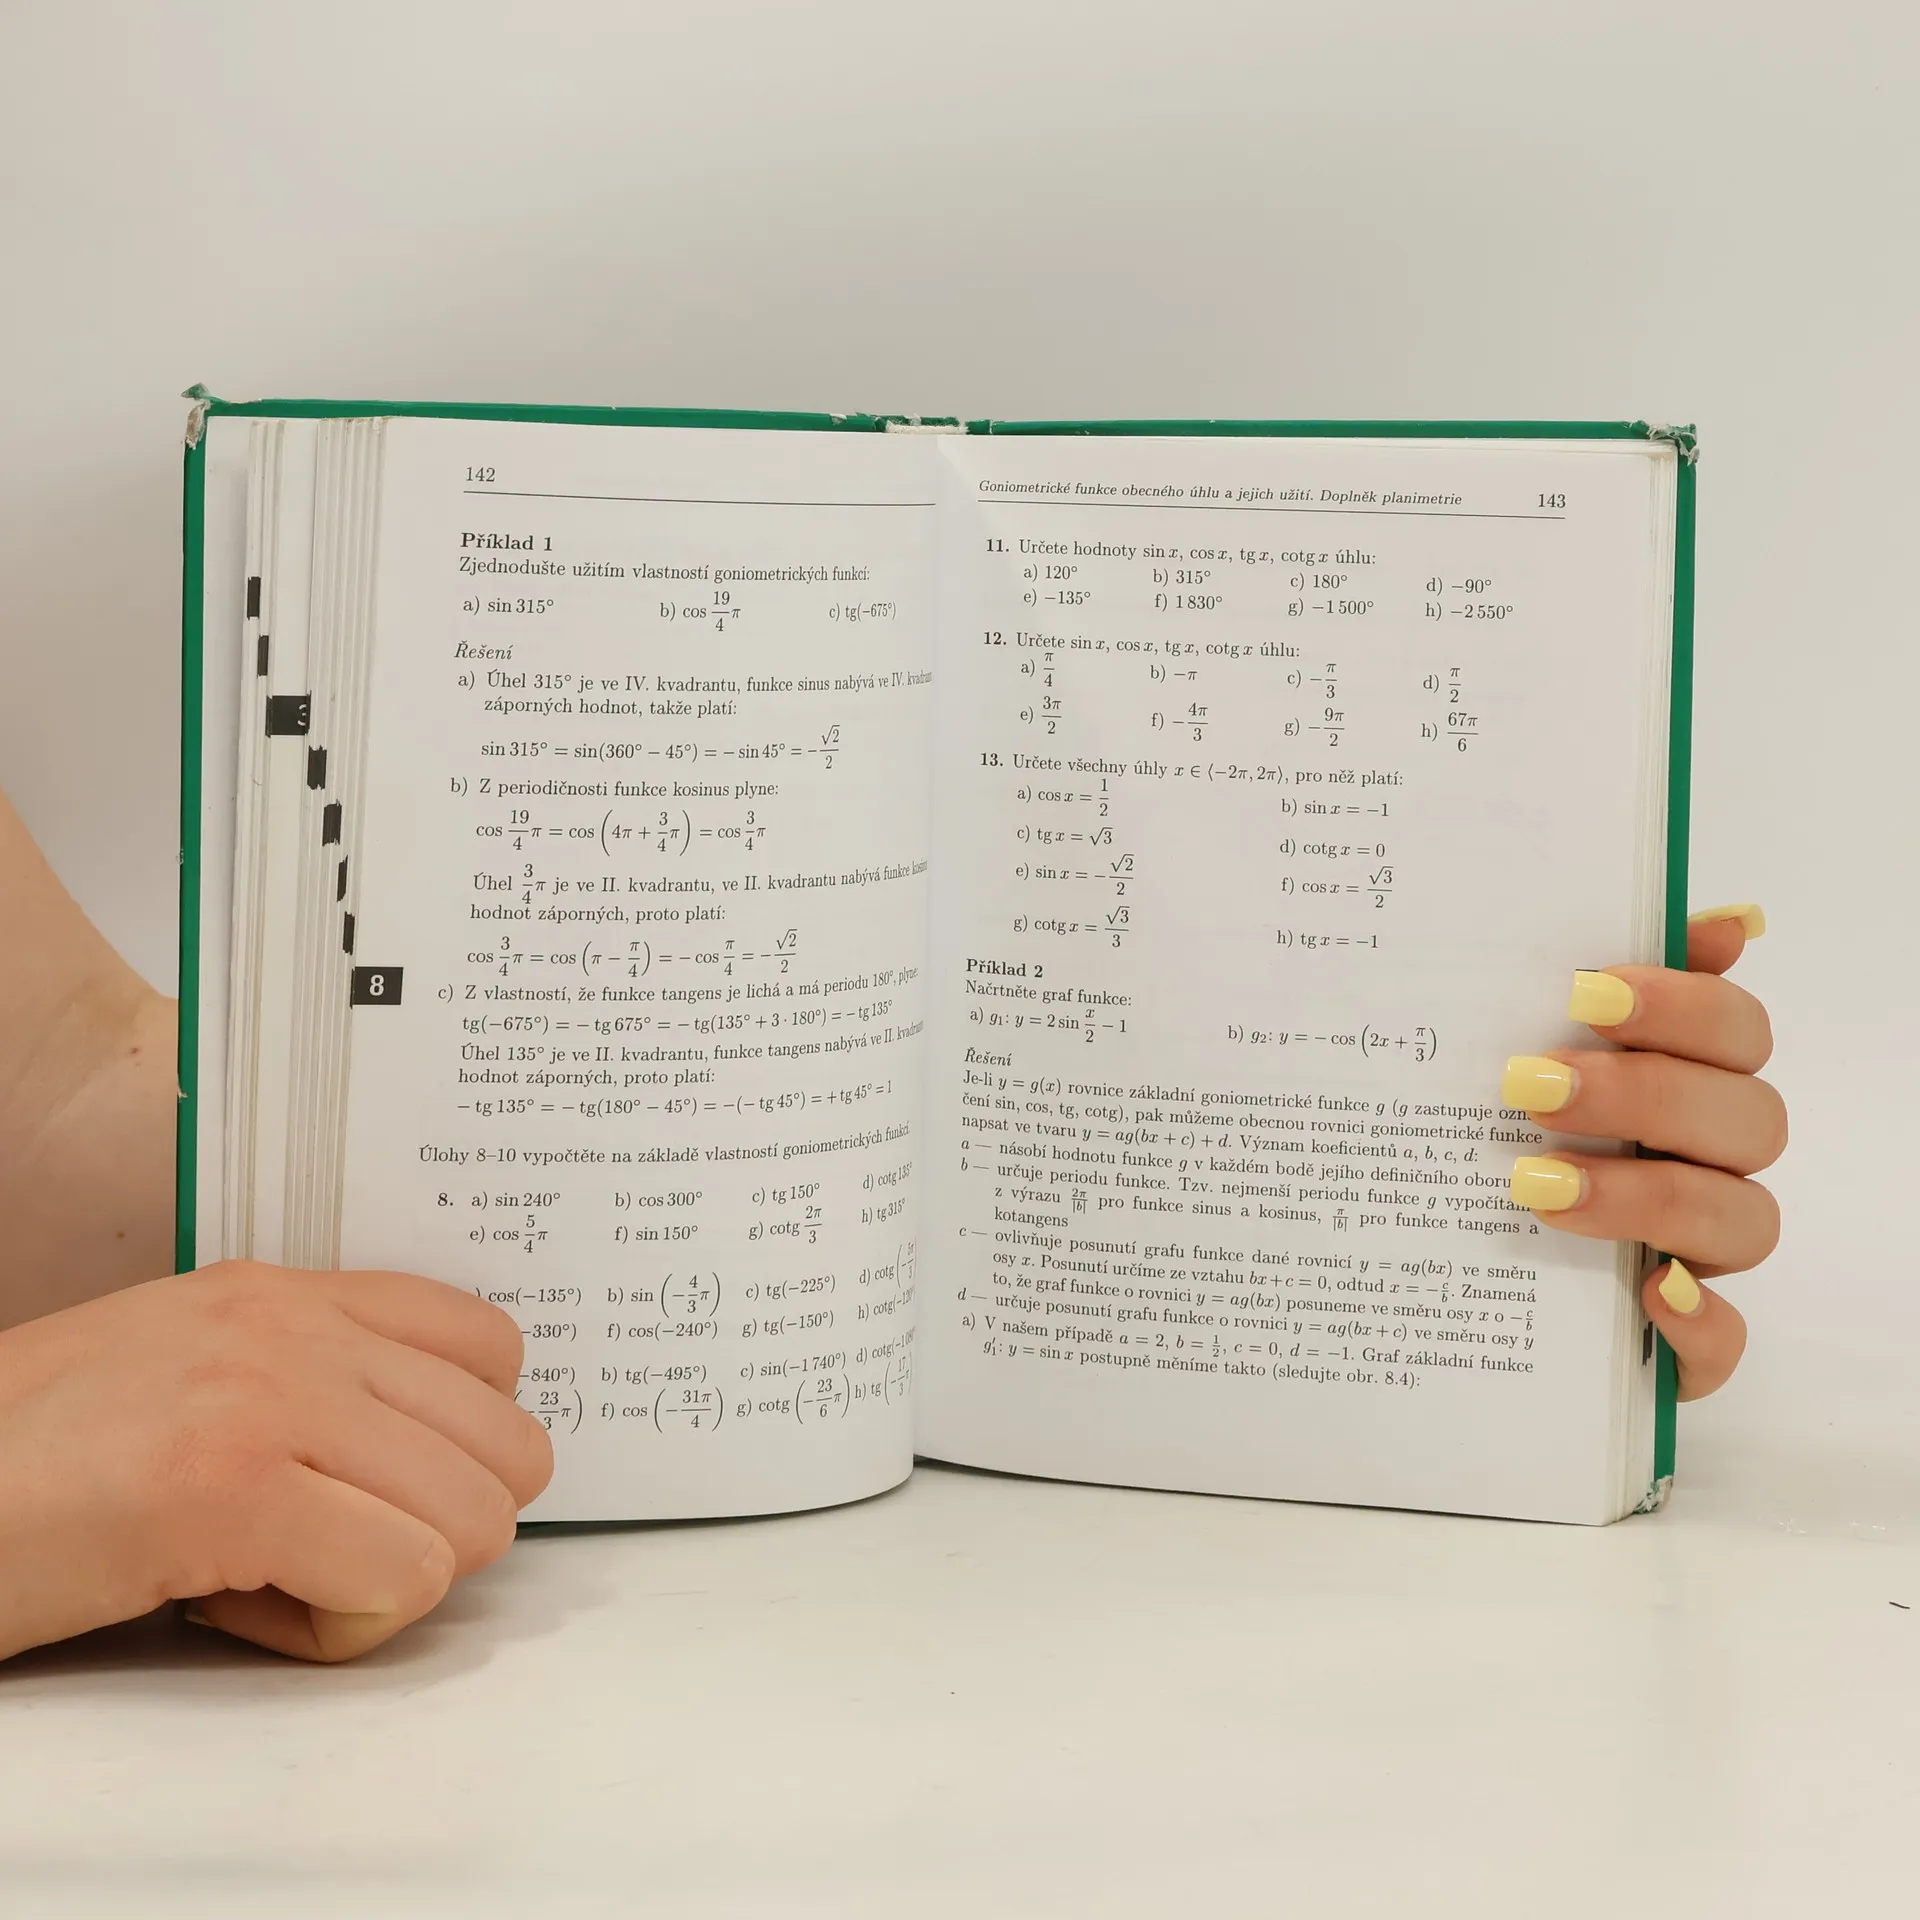 142
Příklad 1
Zjednodušte užitím vlastností goniometrických funkcí:
a) sin 315° b) cos 19/4 π c) tg(−675°)
Řešení
a) Úhel 315° je ve IV. kvadrantu, funkce sinus nabývá ve IV.
záporných hodnot, takže platí:
sin 315° = sin(360° − 45°) = − sin 45° = − √2/2
b) Z periodičnosti funkce kosinus plyne:
cos 19/4 π = cos (4π + 3/4 π) = cos 3/4 π
Úhel 3/4 π je ve II. kvadrantu, ve II. kvadrantu nabývá funkce
hodnot záporných, proto platí:
cos 3/4 π = cos (π − π/4) = − cos π/4 = − √2/2
8
c) Z vlastností, že funkce tangens je lichá a má periodu 180°, plyne:
tg(−675°) = − tg 675° = − tg(135° + 3 · 180°) = − tg 135°
Úhel 135° je ve II. kvadrantu, funkce tangens nabývá ve II.
hodnot záporných, proto platí:
− tg 135° = − tg(180° − 45°) = −(− tg 45°) = + tg 45° = 1
Úlohy 8–10 vypočtěte na základě vlastností goniometrických funkcí
8. a) sin 240° b) cos 300° c) tg 150° d) cotg 135°
e) cos 5/4 π f) sin 150° g) cotg 2π/3 h) tg 315°
) cos(−135°) b) sin (− 4/3 π) c) tg(−225°) d) cotg
−330°) f) cos(−240°) g) tg(−150°) h) cotg
−840°) b) tg(−495°) c) sin(−1 740°) d) cotg
(− 23/3 π) f) cos (− 31π/4) g) cotg (− 23/6 π) h) tg
3
Goniometrické funkce obecného úhlu a jejich užití. Doplněk planimetrie 143
11. Určete hodnoty sin x, cos x, tg x, cotg x úhlu:
a) 120° b) 315° c) 180° d) −90°
e) −135° f) 1 830° g) −1 500° h) −2 550°
12. Určete sin x, cos x, tg x, cotg x úhlu:
a) π/4 b) −π c) − π/3 d) π/2
e) 3π/2 f) − 4π/3 g) − 9π/2 h) 67π/6
13. Určete všechny úhly x ∈ ⟨−2π, 2π⟩, pro něž platí:
a) cos x = 1/2 b) sin x = −1
c) tg x = √3 d) cotg x = 0
e) sin x = − √2/2 f) cos x = √3/2
g) cotg x = √3/3 h) tg x = −1
Příklad 2
Načrtněte graf funkce:
a) g₁: y = 2 sin x/2 − 1 b) g₂: y = − cos (2x + π/3)
Řešení
Je-li y = g(x) rovnice základní goniometrické funkce g (g zastupuje
čení sin, cos, tg, cotg), pak můžeme obecnou rovnici goniometrické funkce
napsat ve tvaru y = ag(bx + c) + d. Význam koeficientů a, b, c, d:
a — násobí hodnotu funkce g v každém bodě jejího definičního oboru
b — určuje periodu funkce. Tzv. nejmenší periodu funkce g
z výrazu 2π/|b| pro funkce sinus a kosinus, π/|b| pro funkce tangens a
kotangens
c — ovlivňuje posunutí grafu funkce dané rovnicí y = ag(bx) ve směru
osy x. Posunutí určíme ze vztahu bx + c = 0, odtud x = − c/b. Znamená
to, že graf funkce o rovnici y = ag(bx) posuneme ve směru osy x o − c/b
d — určuje posunutí grafu funkce o rovnici y = ag(bx + c) ve směru osy y
a) V našem případě a = 2, b = 1/2, c = 0, d = −1. Graf základní funkce
g₁′: y = sin x postupně měníme takto (sledujte obr. 8.4):